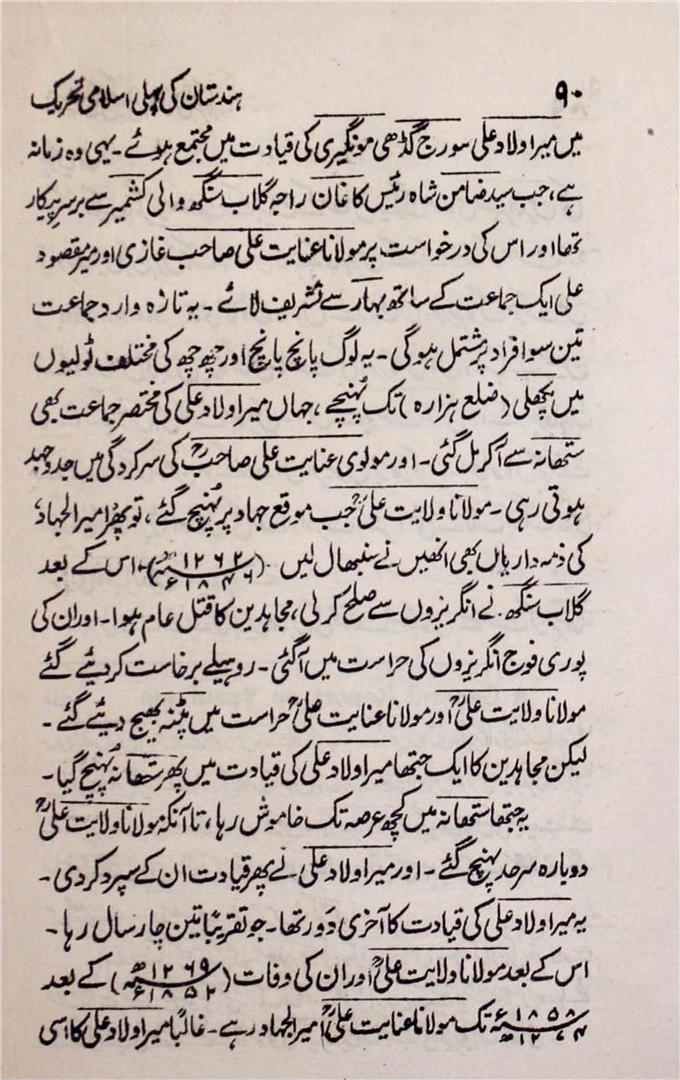 ۹۰ ہندستان کی پہلی اسلامی تحریک
میں میر اولاد علی سورج گڈھی مونگیری کی قیادت میں مجتمع ہوئے۔ یہی وہ زمانہ
ہے، جب سید ضامن شاہ رئیس کاغان راجہ گلاب سنگھ والی کشمیر سے برسرِ پیکار
تھا اور اس کی درخواست پر مولانا عنایت علی صاحب غازی اور میر مقصود
علی ایک جماعت کے ساتھ بہار سے تشریف لائے۔ یہ تازہ وارد جماعت
تین سو افراد پر مشتمل ہوگی۔ یہ لوگ پانچ پانچ اور چھ چھ کی مختلف ٹولیوں
میں پکھلی (ضلع ہزارہ) تک پہنچے، جہاں میر اولاد علی کی مختصر جماعت بھی
ستھانہ سے آکر مل گئی۔ اور مولوی عنایت علی صاحبؒ کی سرکردگی میں جد و جہد
ہوتی رہی۔ مولانا ولایت علیؒ جب موقع جہاد پر پہنچ گئے، تو پھر امیر الجہاد
کی ذمہ داریاں بھی انھیں نے سنبھال لیں (۱۲۶۲ھ ۱۸۴۶ء)۔ اس کے بعد
گلاب سنگھ نے انگریزوں سے صلح کر لی، مجاہدین کا قتل عام ہوا۔ اور ان کی
پوری فوج انگریزوں کی حراست میں آگئی۔ روہیلے برخاست کر دیئے گئے
مولانا ولایت علیؒ اور مولانا عنایت علیؒ حراست میں پٹنہ بھیج دیئے گئے۔
لیکن مجاہدین کا ایک جتھا میر اولاد علی کی قیادت میں پھر ستھانہ پہنچ گیا۔
یہ جتھا ستھانہ میں کچھ عرصہ تک خاموش رہا، تا آنکہ مولانا ولایت علیؒ
دوبارہ سرحد پہنچ گئے۔ اور میر اولاد علی نے پھر قیادت ان کے سپرد کردی۔
یہ میر اولاد علی کی قیادت کا آخری دَور تھا۔ جو تقریباً تین چار سال رہا۔
اس کے بعد مولانا ولایت علیؒ اور ان کی وفات (۱۲۶۹ھ ۱۸۵۲ء) کے بعد
۱۸۵۸ء تک مولانا عنایت علیؒ امیر الجہاد رہے۔ غالباً میر اولاد علی کا اسی